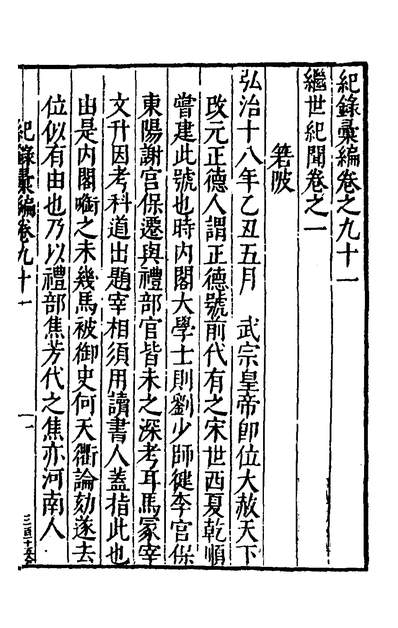 紀錄彙編卷之九十一
繼世紀聞卷之一
箬陂
弘治十八年乙丑五月　武宗皇帝即位大赦天下
改元正德人謂正德號前代有之宋世西夏乾順
嘗建此號也時內閣大學士則劉少師健李官保
東陽謝官保遷與禮部官皆未之深考耳馬冢宰
文升因考科道出題宰相須用讀書人蓋指此也
由是內閣啣之未幾馬被御史何天衢論劾遂去
位似有由也乃以禮部焦芳代之焦亦河南人
紀錄彙編卷九十一
一